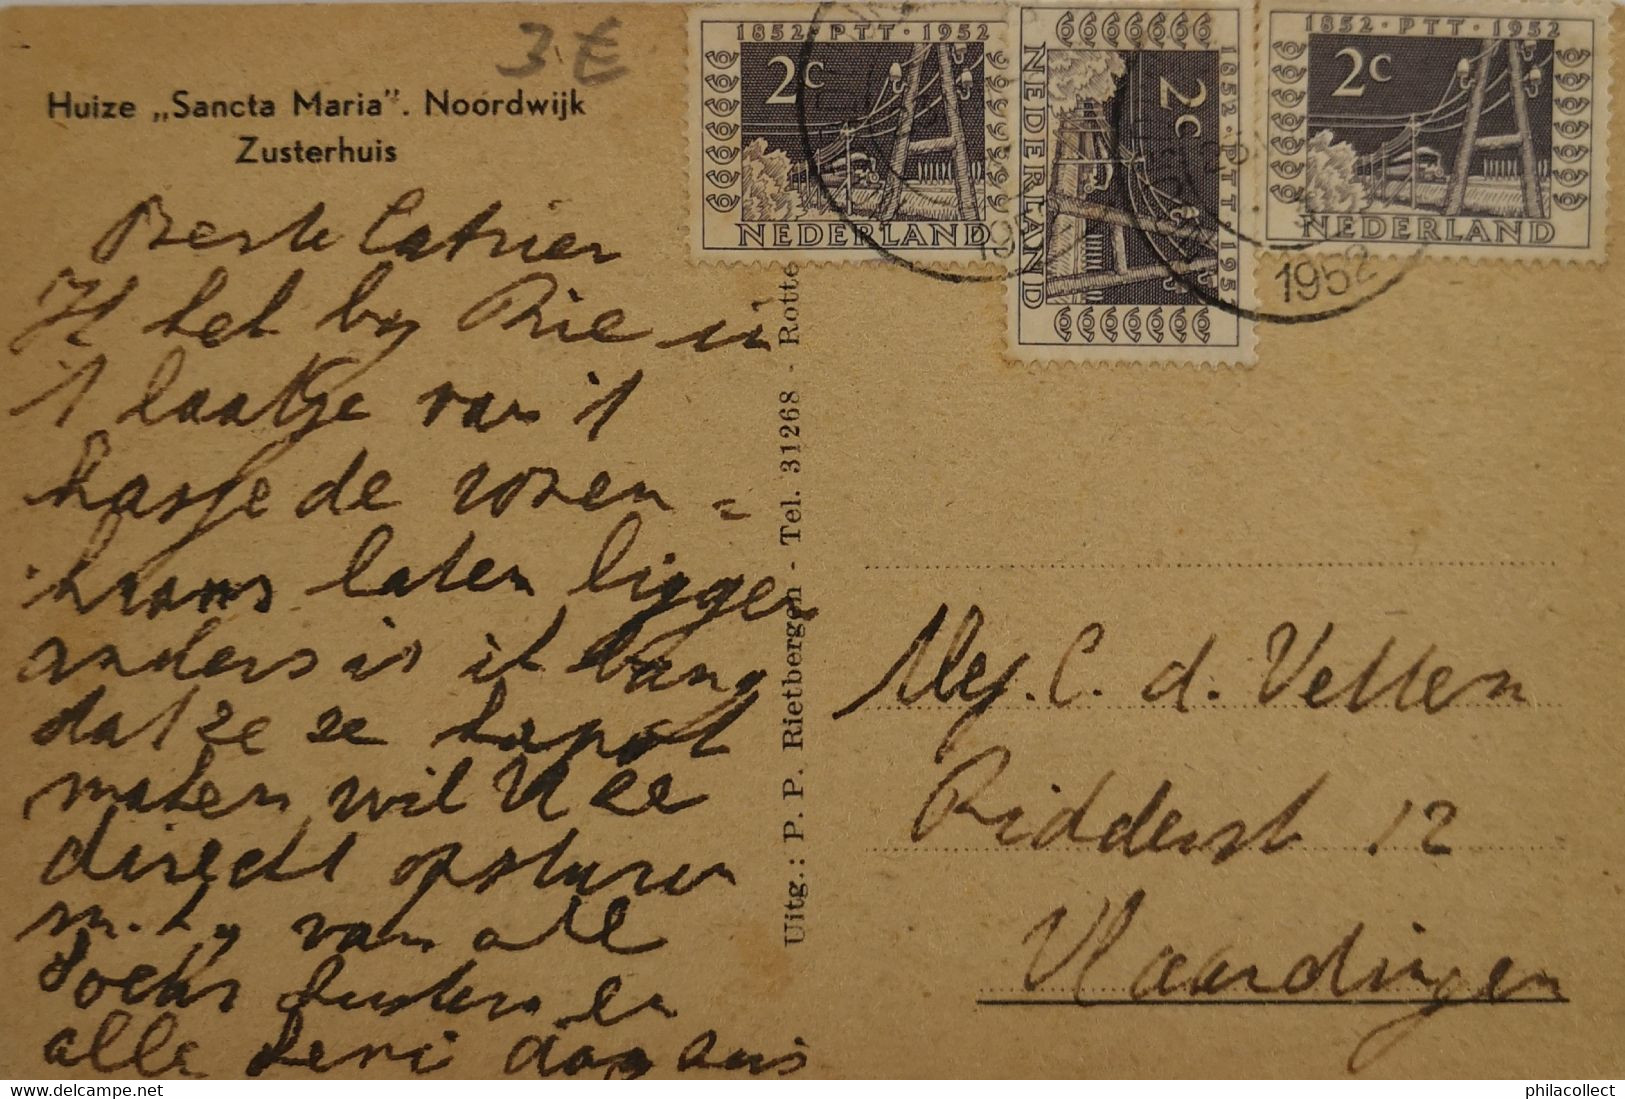 3 €
1852 · PTT · 1952
2c
NEDERLAND
1852 · PTT · 195
2c
NEDERLAND
1852 · PTT · 1952
2c
NEDERLAND
195
1952
Huize „Sancta Maria". Noordwijk
Zusterhuis
Beste Catrien
Ik heb by Rie in
't laatje van 't
kastje de rozen =
krans laten liggen
anders is ik bang
dat ze ze kapot
maken wil U ee
direct opsturen
van alle
en
alle dag
Uitg.: P. P. Rietbergen - Tel. 31268 - Rotte
Mej. C. d. Velden
Ridderst 12
Vlaardingen
philacollect